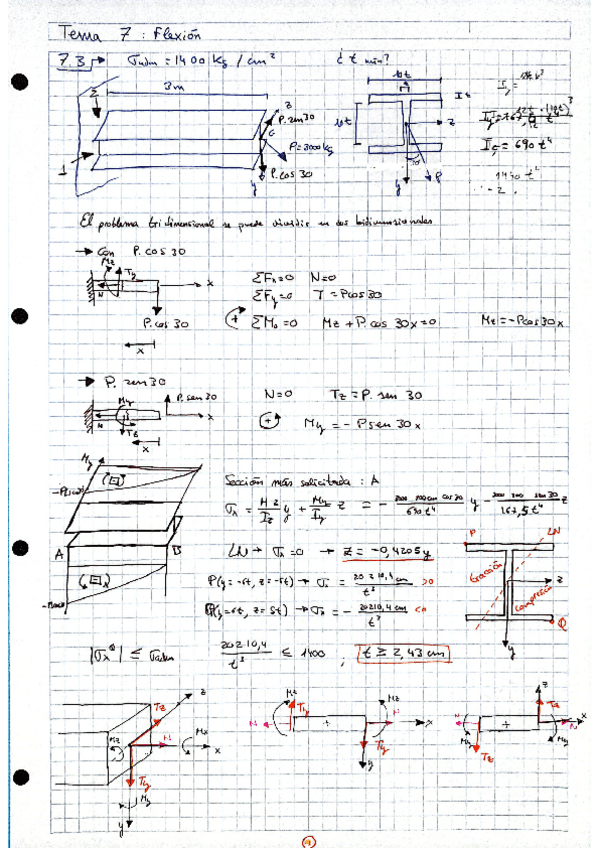 Tema 7 : Flexión
7.3 → σadm = 1400 Kg / cm² ¿ t min?
3m
10t
z
P. sen 30
G
P = 3000 kg
P. cos 30
y
1
10t
t
z
30
y
P
I
Iz = 690 t⁴
El problema tridimensional se puede dividir en dos bidimensionales
→ Con P. cos 30
Mz
Ty
N
x
P. cos 30
x
ΣFx=0 N=0
ΣFy=0 T = Pcos30
+ ΣMo =0 Mz + P. cos 30x = 0 Mz = - Pcos30x
→ P. sen 30
My
P. sen 30
N
x
Tz
x
N=0 Tz = P. sen 30
+ My = - P sen 30 x
My
A
B
Sección más solicitada : A
σx = Mz/Iz y + My/Iy z = - 3000 300cm cos 30/690 t⁴ y - 3000 300 sen 30/167,5 t⁴ z
LN → σx = 0 → z = -0,4205 y
P(y = -6t, z = -5t) → σx = 20210,4 cm/t³ >0
Q(y = 6t, z = 5t) → σx = - 20210,4 cm/t³ <0
P
LN
tracción
compresión
z
Q
y
|σx^Q| ≤ σadm 20210,4/t³ ≤ 1400 ; t ≥ 2,43 cm
z
Tz
Mz
N
Mz
x
Ty
My
y
Mz
Ty
Mz
N
+
N
x
Ty
y
z
Tz
N
+
x
N
My
My
Tz